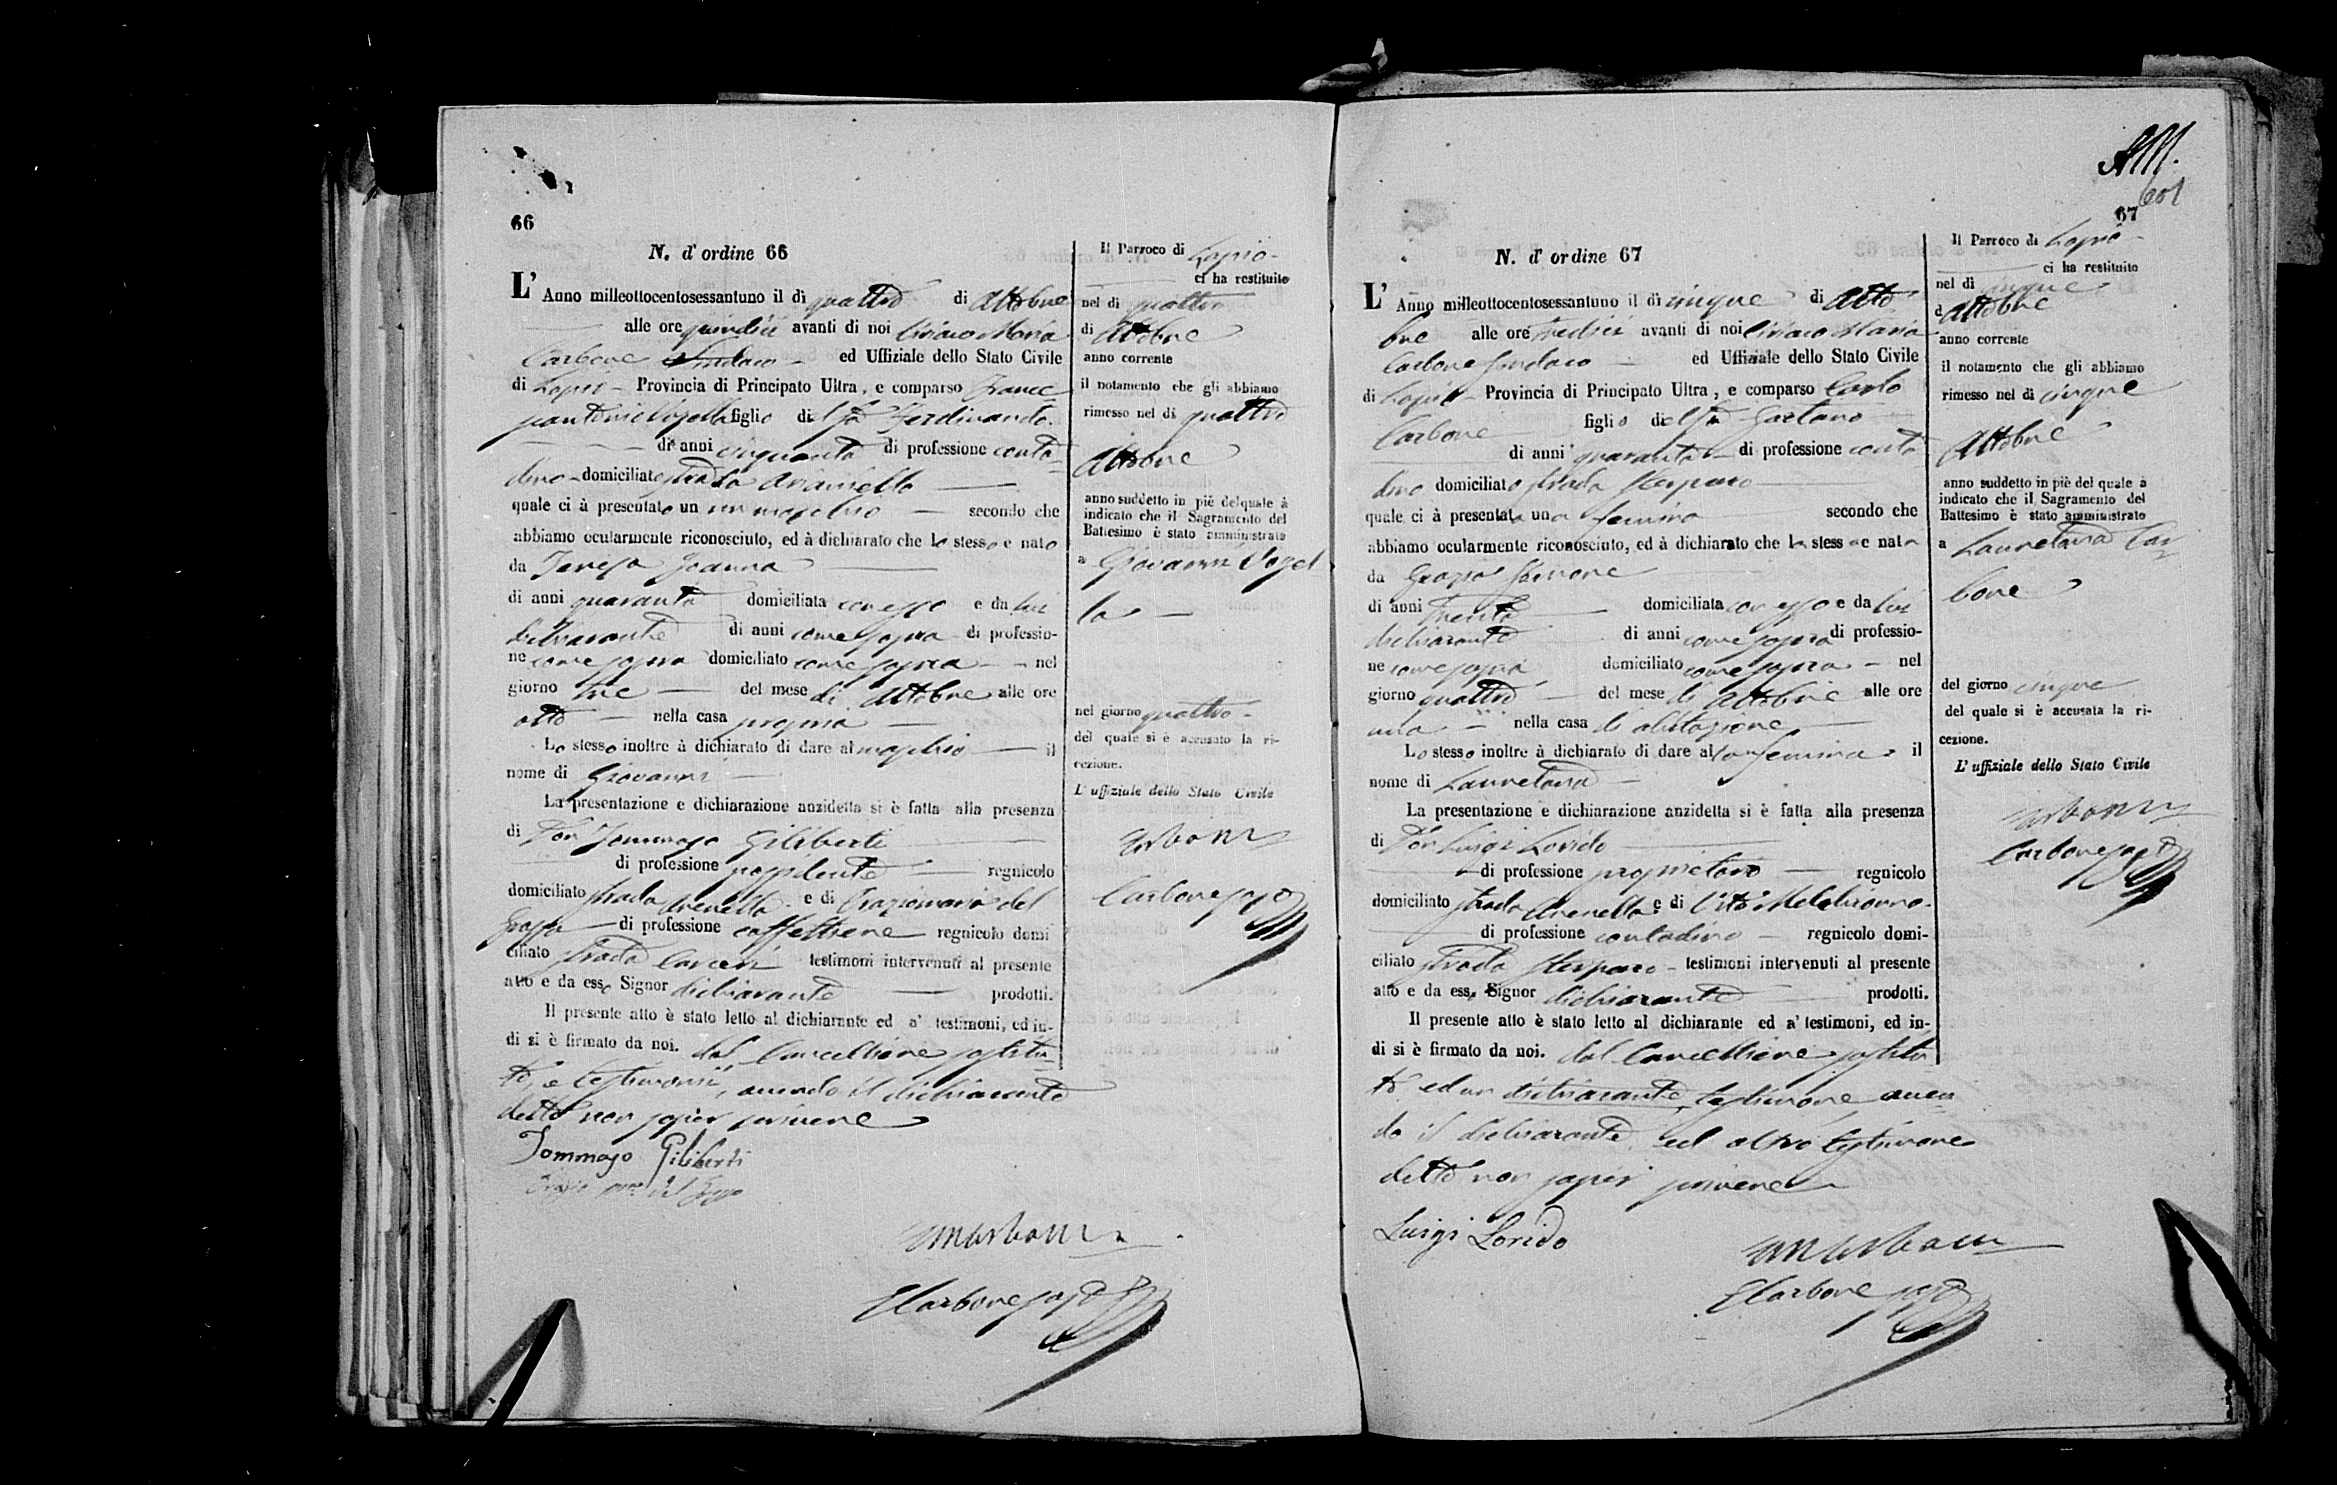 66
N. d'ordine 66
L'Anno milleottocentosessantuno il dì quattro di Ottobre
alle ore quindici avanti di noi Ciriaco Maria
Carbone Sindaco ed Uffiziale dello Stato Civile
di Lapio Provincia di Principato Ultra, e comparso Franc
figlio del fu Ferdinando
di anni cinquanta di professione conta-
dino domiciliato strada
quale ci à presentato un maschio secondo che
abbiamo ocularmente riconosciuto, ed à dichiarato che lo stesso e nato
da Teresa Joanna
di anni quaranta domiciliata con esso e da lui
dichiarante di anni come sopra di professio-
ne come sopra domiciliato come sopra nel
giorno tre del mese di Ottobre alle ore
otto nella casa propria
Lo stesso inoltre à dichiarato di dare al maschio il
nome di Giovanni
La presentazione e dichiarazione anzidetta si è fatta alla presenza
di Don Tommaso Giliberti
di professione possidente regnicolo
domiciliato strada Arenella e di Graziomaria del
Grosso di professione caffettiere regnicolo domi
ciliato strada Carceri testimoni intervenuti al presente
atto e da esso Signor dichiarante prodotti.
Il presente atto è stato letto al dichiarante ed a' testimoni, ed in-
di si è firmato da noi. dal Cancelliere sostitu
to, e testimonii, avendo il dichiarante
detto non saper scrivere
Tommaso Giliberti
Carbone
Il Parroco di Lapio
ci ha restituito
nel dì quattro
di Ottobre
anno corrente
il notamento che gli abbiamo
rimesso nel dì quattro
Ottobre
anno suddetto in piè del quale à
indicato che il Sagramento del
Battesimo è stato amministrato
a Giovanni Vogel
la
nel giorno quattro
del quale si è accusato la ri-
cezione.
L'uffiziale dello Stato Civile
Carbone
601
67
N. d'ordine 67
L'Anno milleottocentosessantuno il dì cinque di Otto
bre alle ore tredici avanti di noi Ciriaco Maria
Carbone Sindaco ed Uffiziale dello Stato Civile
di Lapio Provincia di Principato Ultra, e comparso Carlo
Carbone figlio del fu Gaetano
di anni quaranta di professione conta
dino domiciliato strada
quale ci à presentata una femina secondo che
abbiamo ocularmente riconosciuto, ed à dichiarato che la stessa e nata
da Grazia
di anni trenta domiciliata con esso e da lui
dichiarante di anni come sopra di professio-
ne come sopra domiciliato come sopra nel
giorno quattro del mese di Ottobre alle ore
una nella casa di abitazione
Lo stesso inoltre à dichiarato di dare alla femina il
nome di Lauretana
La presentazione e dichiarazione anzidetta si è fatta alla presenza
di Don Luigi Lorido
di professione proprietario regnicolo
domiciliato strada Arenella e di Vito Melchionno
di professione contadino regnicolo domi-
ciliato strada testimoni intervenuti al presente
atto e da esso Signor dichiarante prodotti.
Il presente atto è stato letto al dichiarante ed a' testimoni, ed in-
di si è firmato da noi. dal Cancelliere sostitu
to ed un dichiarante testimone aven
do il dichiarante ed altro testimone
detto non saper scrivere
Luigi Lorido
Carbone
Il Parroco di Lapio
ci ha restituito
nel dì cinque
d Ottobre
anno corrente
il notamento che gli abbiamo
rimesso nel dì cinque
Ottobre
anno suddetto in piè del quale à
indicato che il Sagramento del
Battesimo è stato amministrato
a Lauretana Car
bone
del giorno cinque
del quale si è accusata la ri-
cezione.
L'uffiziale dello Stato Civile
Carbone